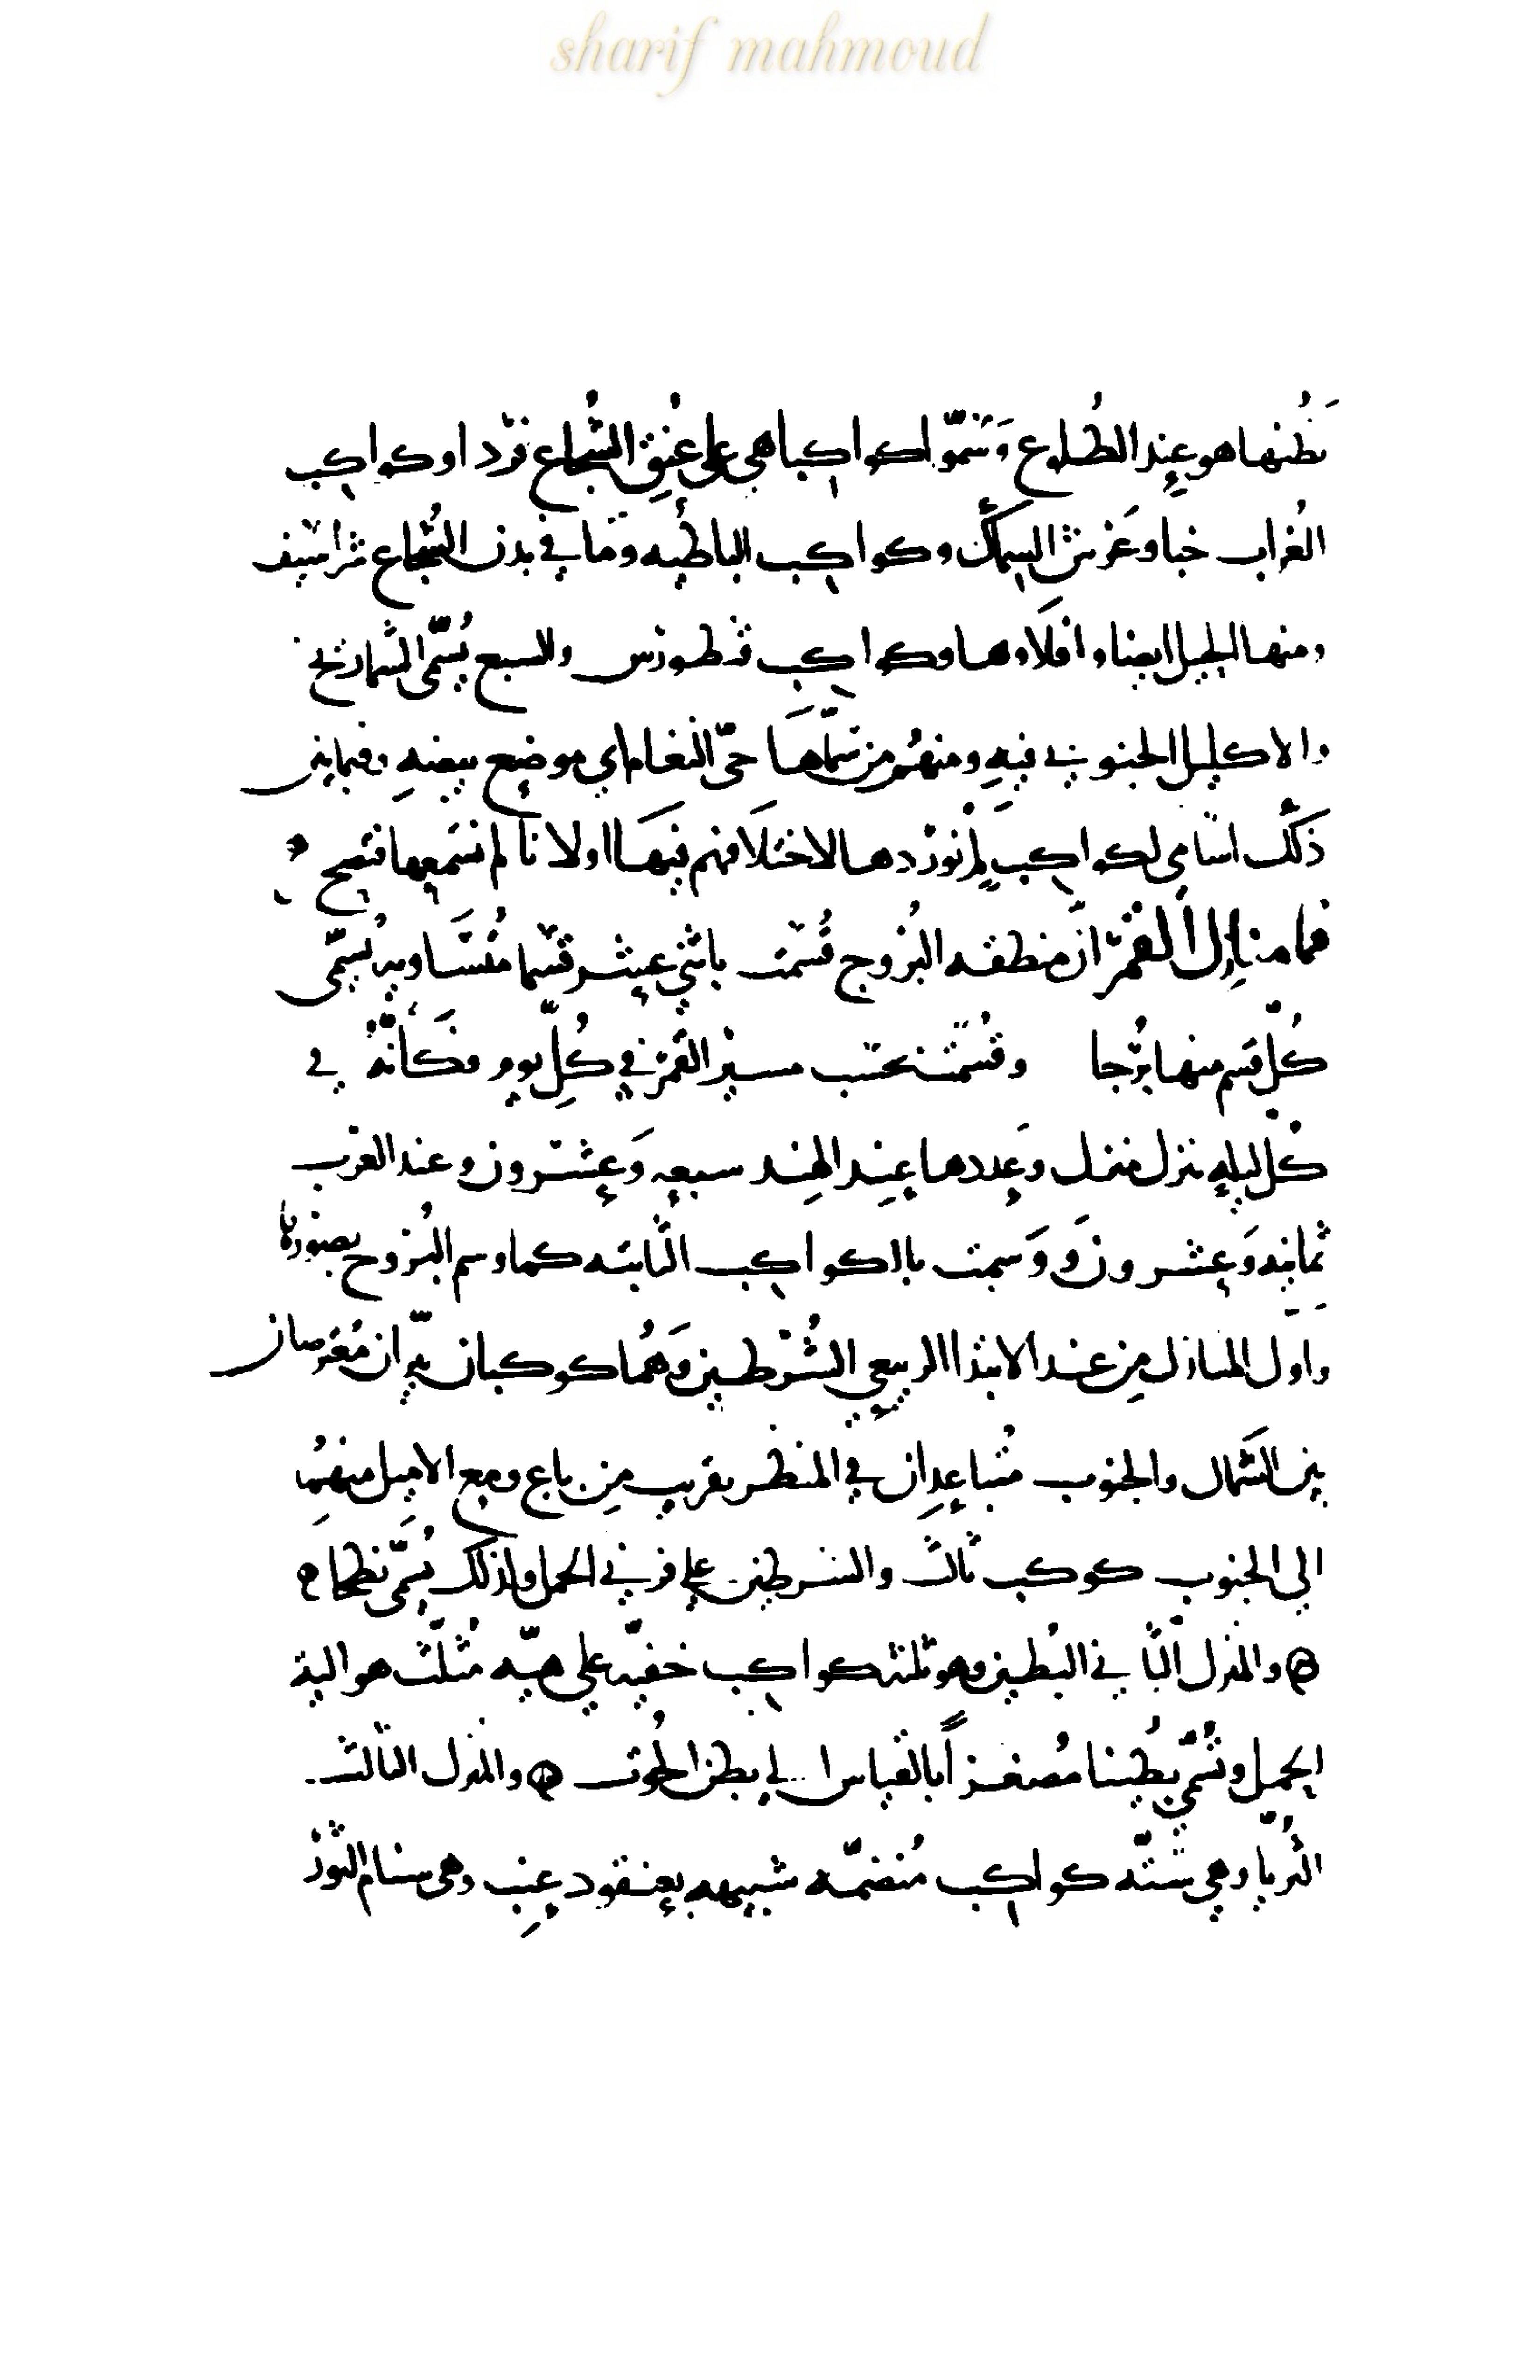 sharif mahmoud
يظنها هو عند الطلوع وسموا كواكبا هي على عنق الشجاع فردا وكواكب
الغراب خبا وعرش السماك وكواكب الباطيه وما في بدن الشجاع شراسيف
ومنها الخيل ايضا وافلاوها وكواكب قنطورس والسبع يسمى الشماريخ
والاكليل الجنوبي فيه ومنهم من سماها حي النعام اي موضع بيضه وفيما بين
ذلك اسامي لكواكب لم نوردها لاختلافهم فيها اولانا لم نسمعها فتصح
فاما منازل القمر ان منطقه البروج قسمت باثني عشر قسما متساويه يسمى
كل قسم منها برجا وقسمت بحسب مسير القمر في كل يوم فكأنه في
كل ليله ينزل منزل وعددها عند الهند سبعه وعشرون وعند العرب
ثمانيه وعشرون ووسمت بالكواكب الثابته كما وسم البروج بصورها
واول المنازل من عند الابتدا الربيعي الشرطين وهما كوكبان نيران مفترصان
بين الشمال والجنوب متباعدان في المنظر بقريب من باع ومع الاميل منهما
الي الجنوب كوكب ثالث والشرطين على قرني الحمل ولذلك يسمى نطحا ٥
والمنزل الثاني البطين وهو ثلثة كواكب خفيه على هيه مثلث هو الية
الحمل وسمي بطينا مصغرا بالقياس الي بطن الحوت والمنزل الثالث
الثريا وهي سته كواكب منضمه شبيهه بعنقود عنب وهي سنام الثور